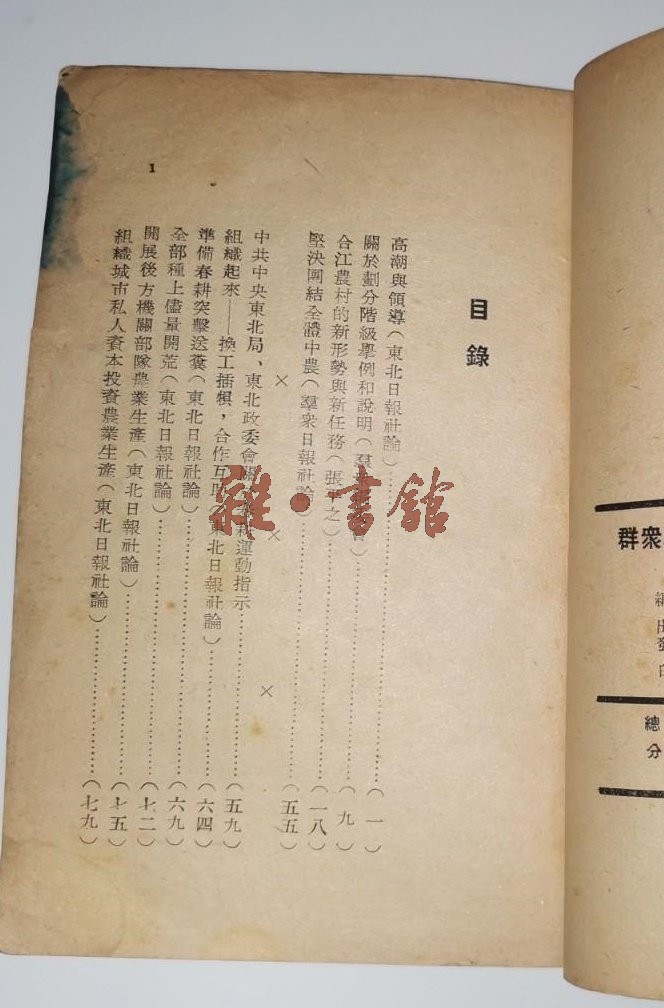 群衆
總
分
目錄
高潮與領導(東北日報社論)……(一)
關於劃分階級舉例和說明(羣……(九)
合江農村的新形勢與新任務(張 之)……(一八)
堅決團結全體中農(羣衆日報社論)……(五五)
× × ×
中共中央東北局、東北政委會關 運動指示……(五九)
組織起來——換工插犋,合作互 東北日報社論)……(六四)
準備春耕突擊送糞(東北日報社論)……(六九)
全部種上儘量開荒(東北日報社論)……(七二)
開展後方機關部隊農業生產(東北日報社論)……(七五)
組織城市私人資本投資農業生產(東北日報社論)……(七九)
1
雜·書館